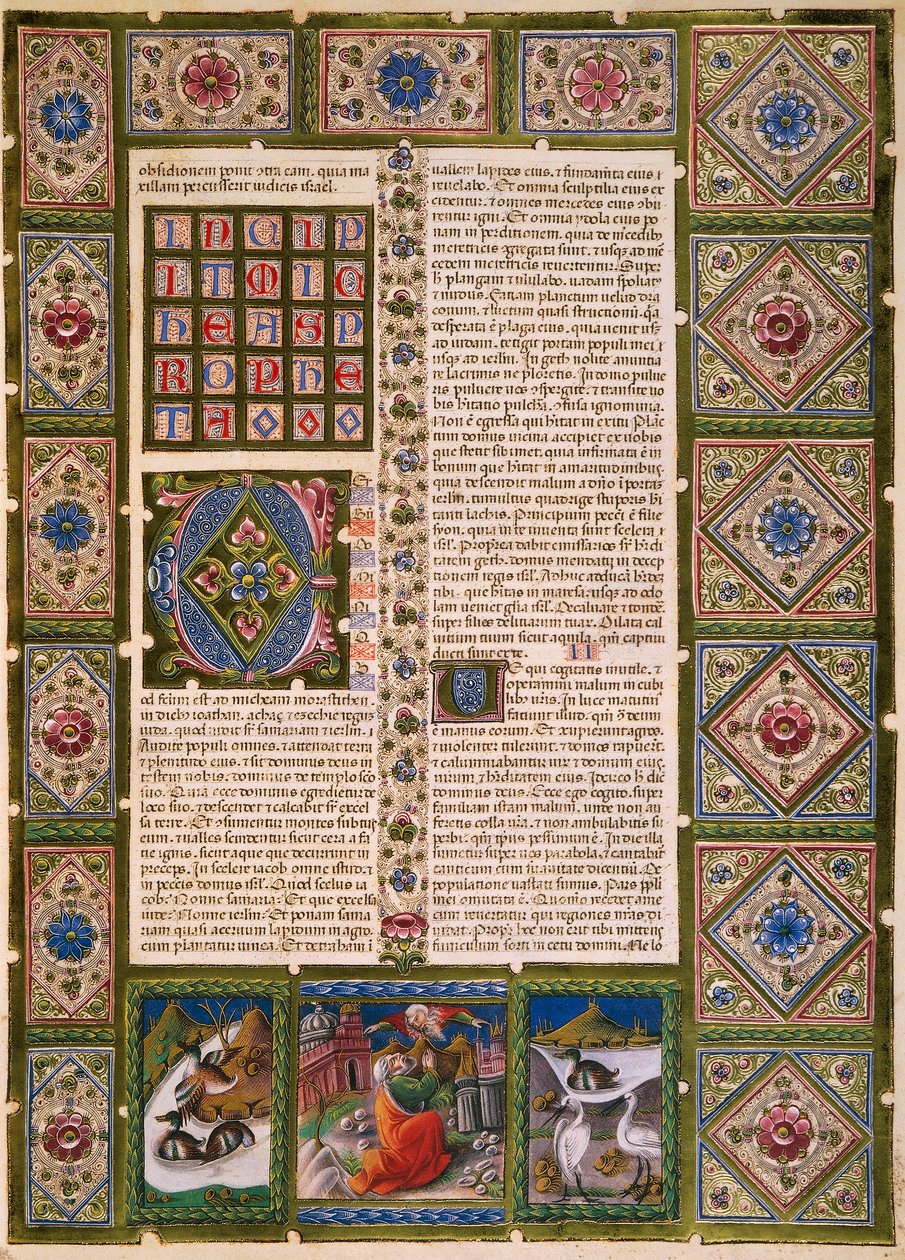 obsidionem ponit ꝯtra eam. quia ma
xillam percusserit iudicis israel.
INCIP
IT MIC
HEAS P
ROPHE
TA
BŨ
DO
MI
NI
od fcũm est ad micheam morastithen
in dieb; ioathan. achaz. ⁊ ezechie regũ
iuda. quod uidit sr̃ samariam ⁊ ierlm̃.
Audite populi omnes. ⁊ attendat terra
⁊ plenitudo eius. ⁊ sit dominus deus in
testem uobis. dominus de templo sc̃o
suo. Quia ecce dominus egredietur de
loco suo. ⁊ descendet ⁊ calcabit sr̃ excel
sa terre. Et ꝯsumentur montes subtus
eum. ⁊ ualles scindentur sicut cera a fa
cie ignis. sicut aque que decurrunt in
preceps. In scelere iacob omne istud. ⁊
in pecc̃is domus isrl̃. Quod scelus ia
cob: Nonne samaria: Et que excelsa
iude: Nonne ierlm̃: Et ponam sama
riam quasi aceruum lapidum in agro
cum plantatur uinea. Et detraham ĩ
uallem lapides eius. ⁊ fundam̃ta eius
reuelabo. Et omnia sculptilia eius ꝯ
cidentur. ⁊ omnes mercedes eius ꝯbu
rentur igni. Et omnia ydola eius po
nam in perditionem. quia de m̃cedib;
meretricis ꝯgregata sunt. ⁊ usq; ad m̃
cedem meretricis reuertentur. Super
h̃ plangam ⁊ ululabo. uadam spoliat;
⁊ nudus. Faciam planctum uelud dra
conum. ⁊ luctum quasi structionũ. q̃a
desperata ẽ plaga eius. quia uenit usq;
ad iudam. tetigit portam populi mei
usq; ad ierlm̃. In geth nolite anuntia
re lacrimis ne ploretis. In domo pulue
ris puluere uos ꝯspergite. ⁊ transite uo
bis h̃itatio pulchra. ꝯfusa ignominia.
Non ẽ egressa qui h̃itat in exitu. Planc
tum domus uicina accipiet ex uobis
que stetit sibimet. quia infirmata ẽ in
bonum que h̃itat in amaritudinibus.
quia descendit malum a dño ĩ portas
ierlm̃. tumultus quadrige stuporis h̃i
tanti lachis. Principium pecc̃i ẽ filie
syon. quia in te inuenta sunt scelera
isrl̃. Propterea dabit emissarios sr̃ h̃edi
tatem geth. domus mendacii in decep
tionem regis isrl̃. Adhuc adducã h̃ede̅
tibi. que h̃itas in maresa. usq; ad odo
lam ueniet gl̃ia isrl̃. Decaluare ⁊ tonde̅
super filios delitiarum tuar̃. Dilata cal
uitium tuum sicut aquila. qm̃ captiui
ducti sunt ex te. II
Ve qui cogitatis inutile. ⁊
operamini malum in cubi
lib; ur̃is. In luce matutina
faciunt illud. qm̃ ꝯ̃ deum
ẽ manus eorum. Et ꝯcupierunt agros.
⁊ uiolenter tulerunt. ⁊ domos rapuerũt.
⁊ calumniabantur uirum ⁊ domum eius.
uirum ⁊ h̃editatem eius. Idcirco h̃ dicit
dominus deus. Ecce ego cogito super
familiam istam malum. unde non au
feretis colla ur̃a. ⁊ non ambulabitis su
perbi: qm̃ tp̃us pessimum ẽ. In die illa
sumetur super uos parabola. ⁊ cantabit̃
canticum cum suauitate dicentiũ. De
populatione uastati sumus. Pars pp̃li
mei ꝯmutata est. Quom̃ recedet a me
cum reuertatur qui regiones nr̃as di
uidat. Propt̃ hoc non erit tibi mittens
funiculum sortis in cetu domini. Ne lo